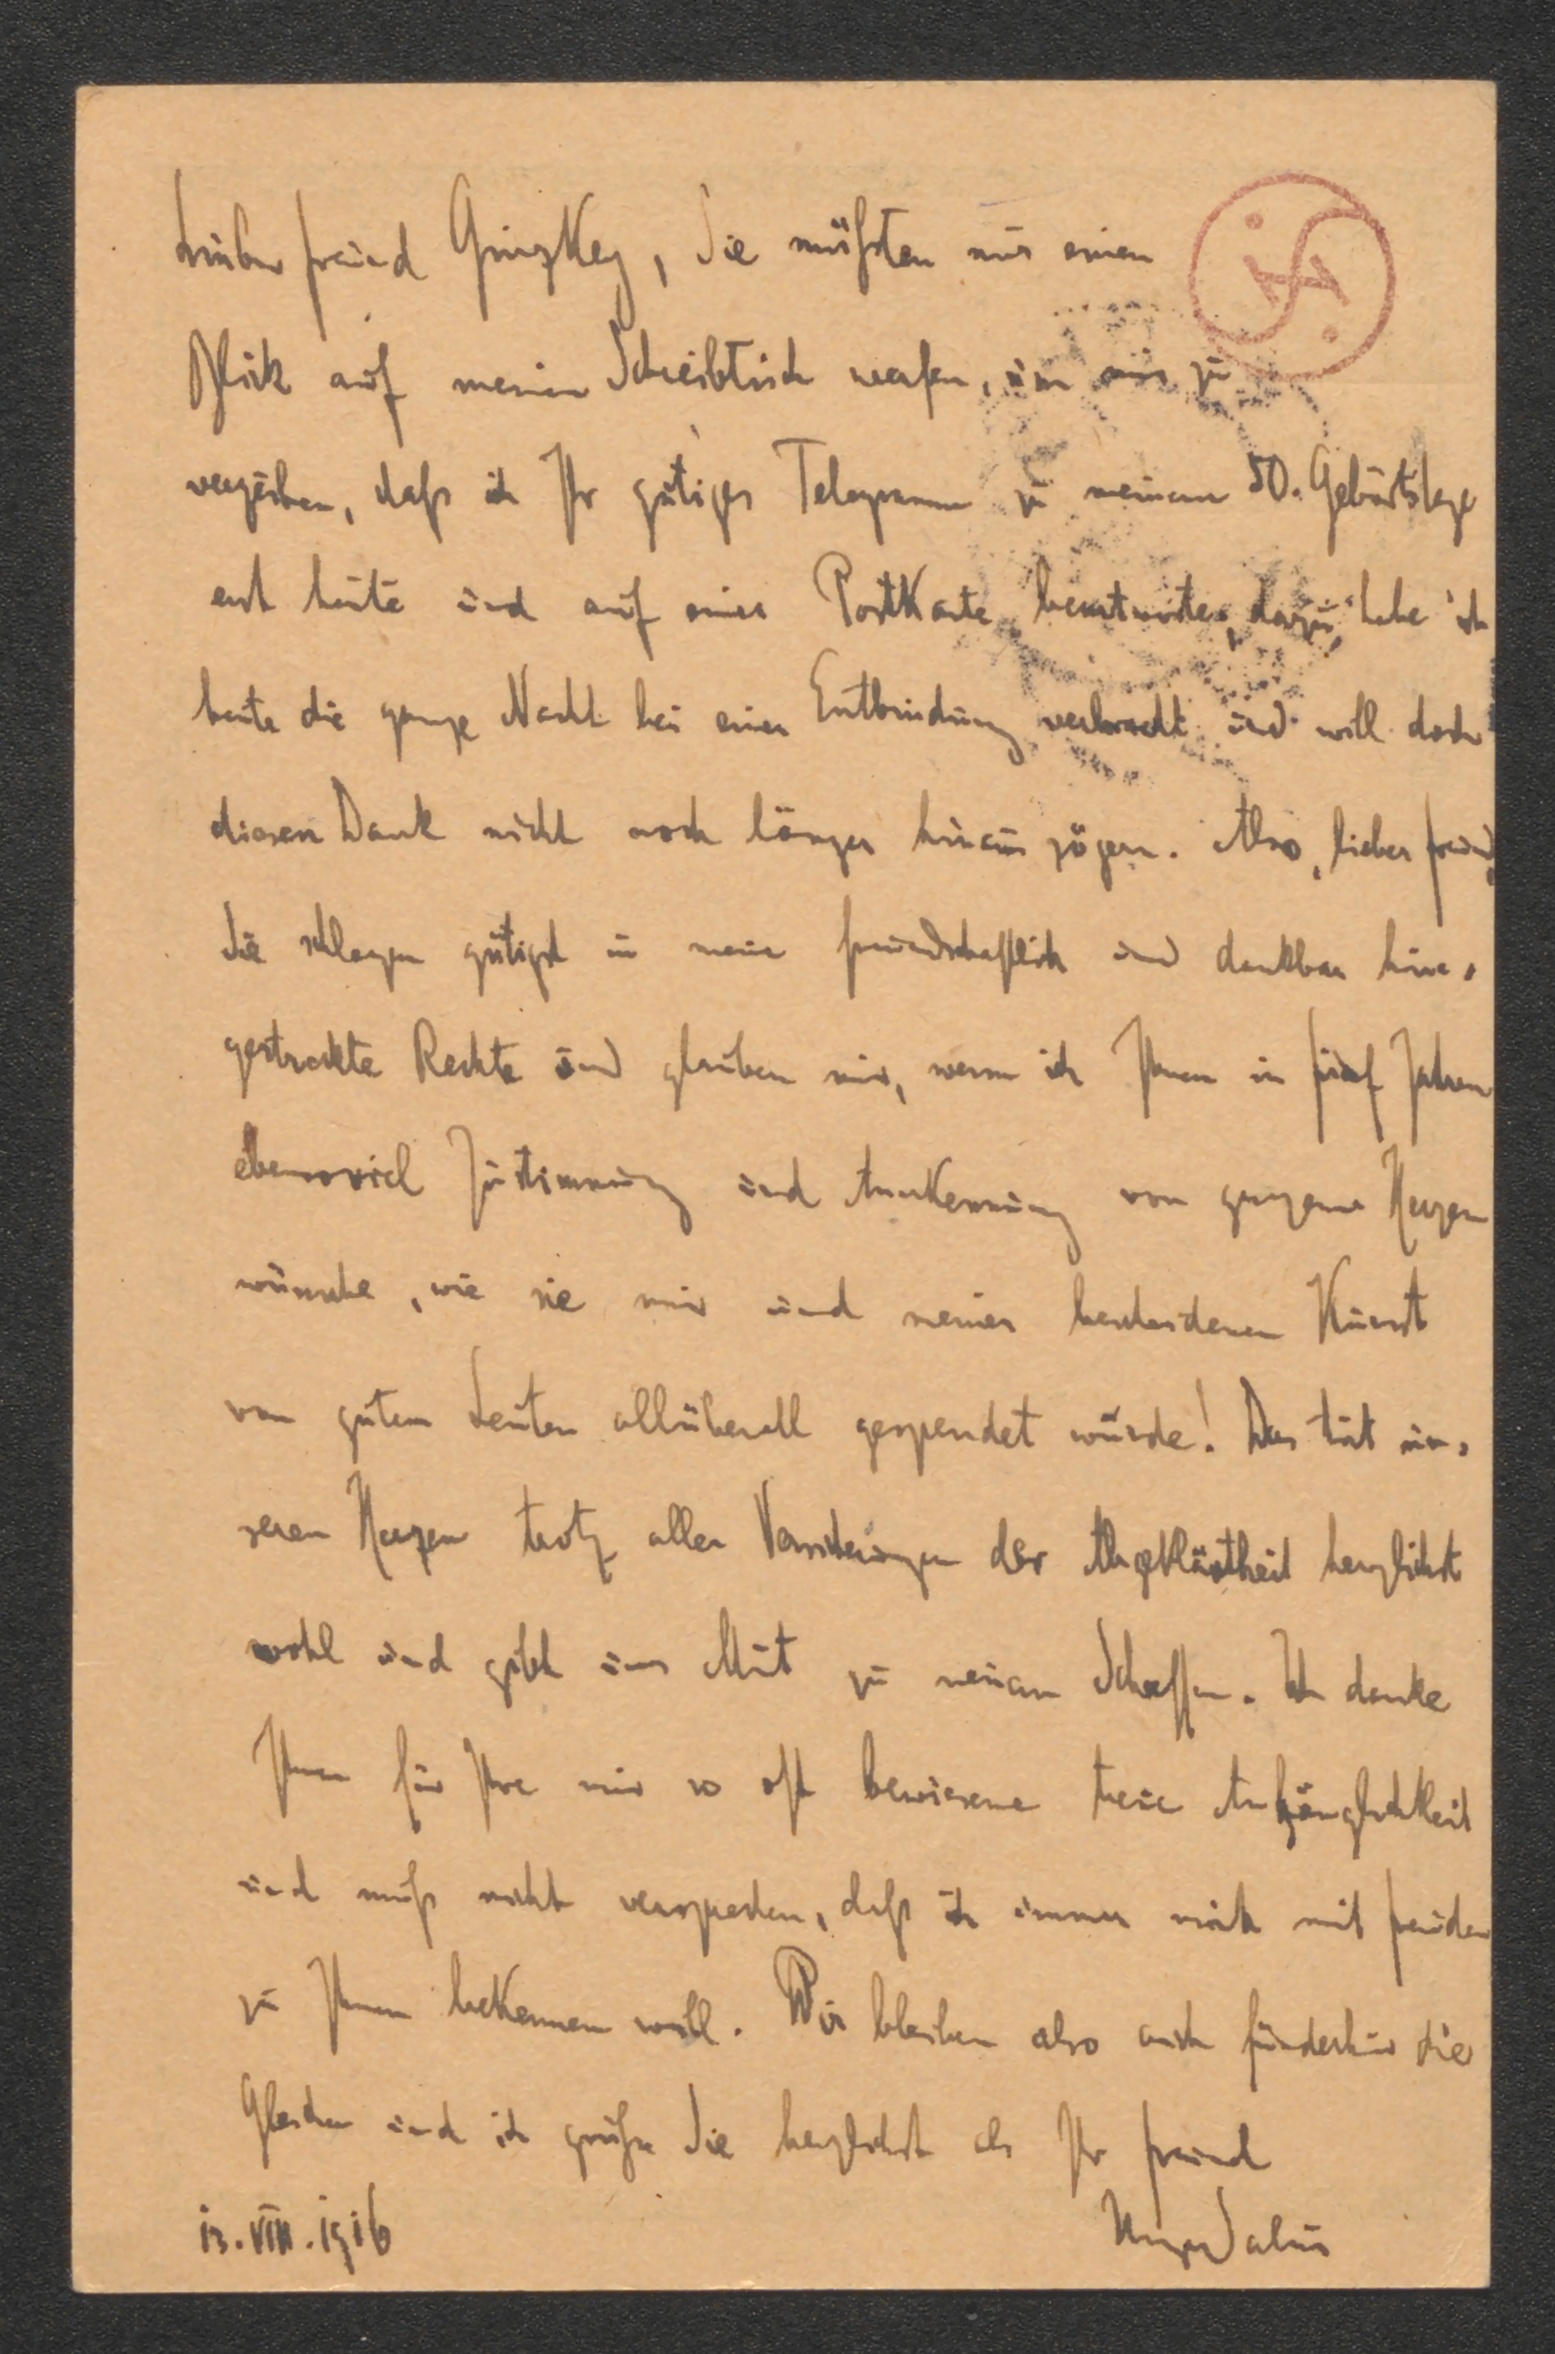 Lieber Freund Ginzkey, Sie müßten nur einen
Blick auf meinen Schreibtisch werfen, um mir zu
verzeihen, daß ich Ihr gütiges Telegramm zu meinem 50. Geburtstage
erst heute und auf einer Postkarte beantworte, dazu habe ich
heute die ganze Nacht bei einer Entbindung verbracht und will doch
diesen Dank nicht noch länger hinaus zögern. Also, lieber Freund,
Sie schlagen gütigst in meine freundschaftlich und dankbar hin-
gestreckte Rechte und glauben mir, wenn ich Ihnen in fünf Jahren
ebensoviel Zustimmung und Anerkennung von ganzem Herzen
wünsche, wie sie mir und meiner bescheidenen Kunst
von guten Leuten allüberall gespendet wurde! Das tut un-
seren Herzen trotz aller der Abgeklärtheit herzlichst
wohl und gibt uns Mut zu neuem Schaffen. Ich danke
Ihnen für Ihre mir so oft bewiesene treue Anhänglichkeit
und muß nicht versprechen, daß ich immer mich mit Freuden
zu Ihnen bekennen will. Wir bleiben also auch fürderhin die
Gleichen und ich grüße Sie herzlichst als Ihr Freund
13.VIII.1916 Hugo Salus